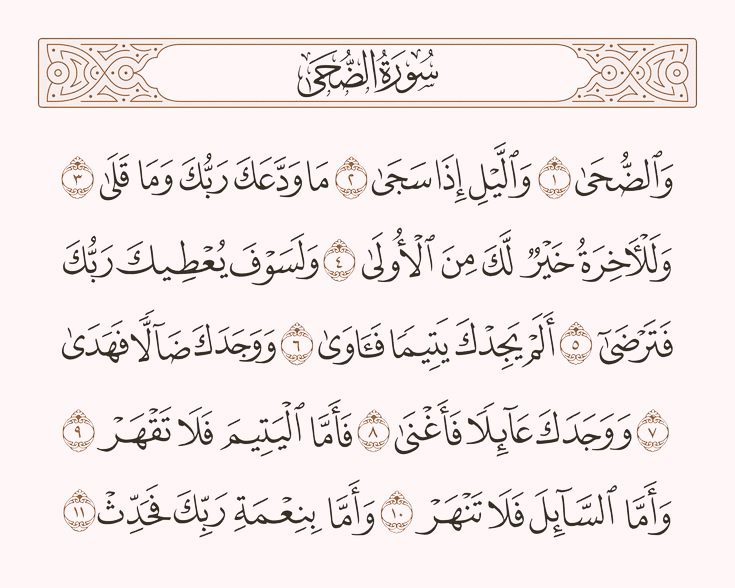 سُورَةُ الضُّحَىٰ
وَٱلضُّحَىٰ ١ وَٱلَّيْلِ إِذَا سَجَىٰ ٢ مَا وَدَّعَكَ رَبُّكَ وَمَا قَلَىٰ ٣
وَلَلْآخِرَةُ خَيْرٌ لَّكَ مِنَ ٱلْأُولَىٰ ٤ وَلَسَوْفَ يُعْطِيكَ رَبُّكَ
فَتَرْضَىٰٓ ٥ أَلَمْ يَجِدْكَ يَتِيمًا فَـَٔاوَىٰ ٦ وَوَجَدَكَ ضَآلًّا فَهَدَىٰ
٧ وَوَجَدَكَ عَآئِلًا فَأَغْنَىٰ ٨ فَأَمَّا ٱلْيَتِيمَ فَلَا تَقْهَرْ ٩
وَأَمَّا ٱلسَّآئِلَ فَلَا تَنْهَرْ ١٠ وَأَمَّا بِنِعْمَةِ رَبِّكَ فَحَدِّثْ ١١